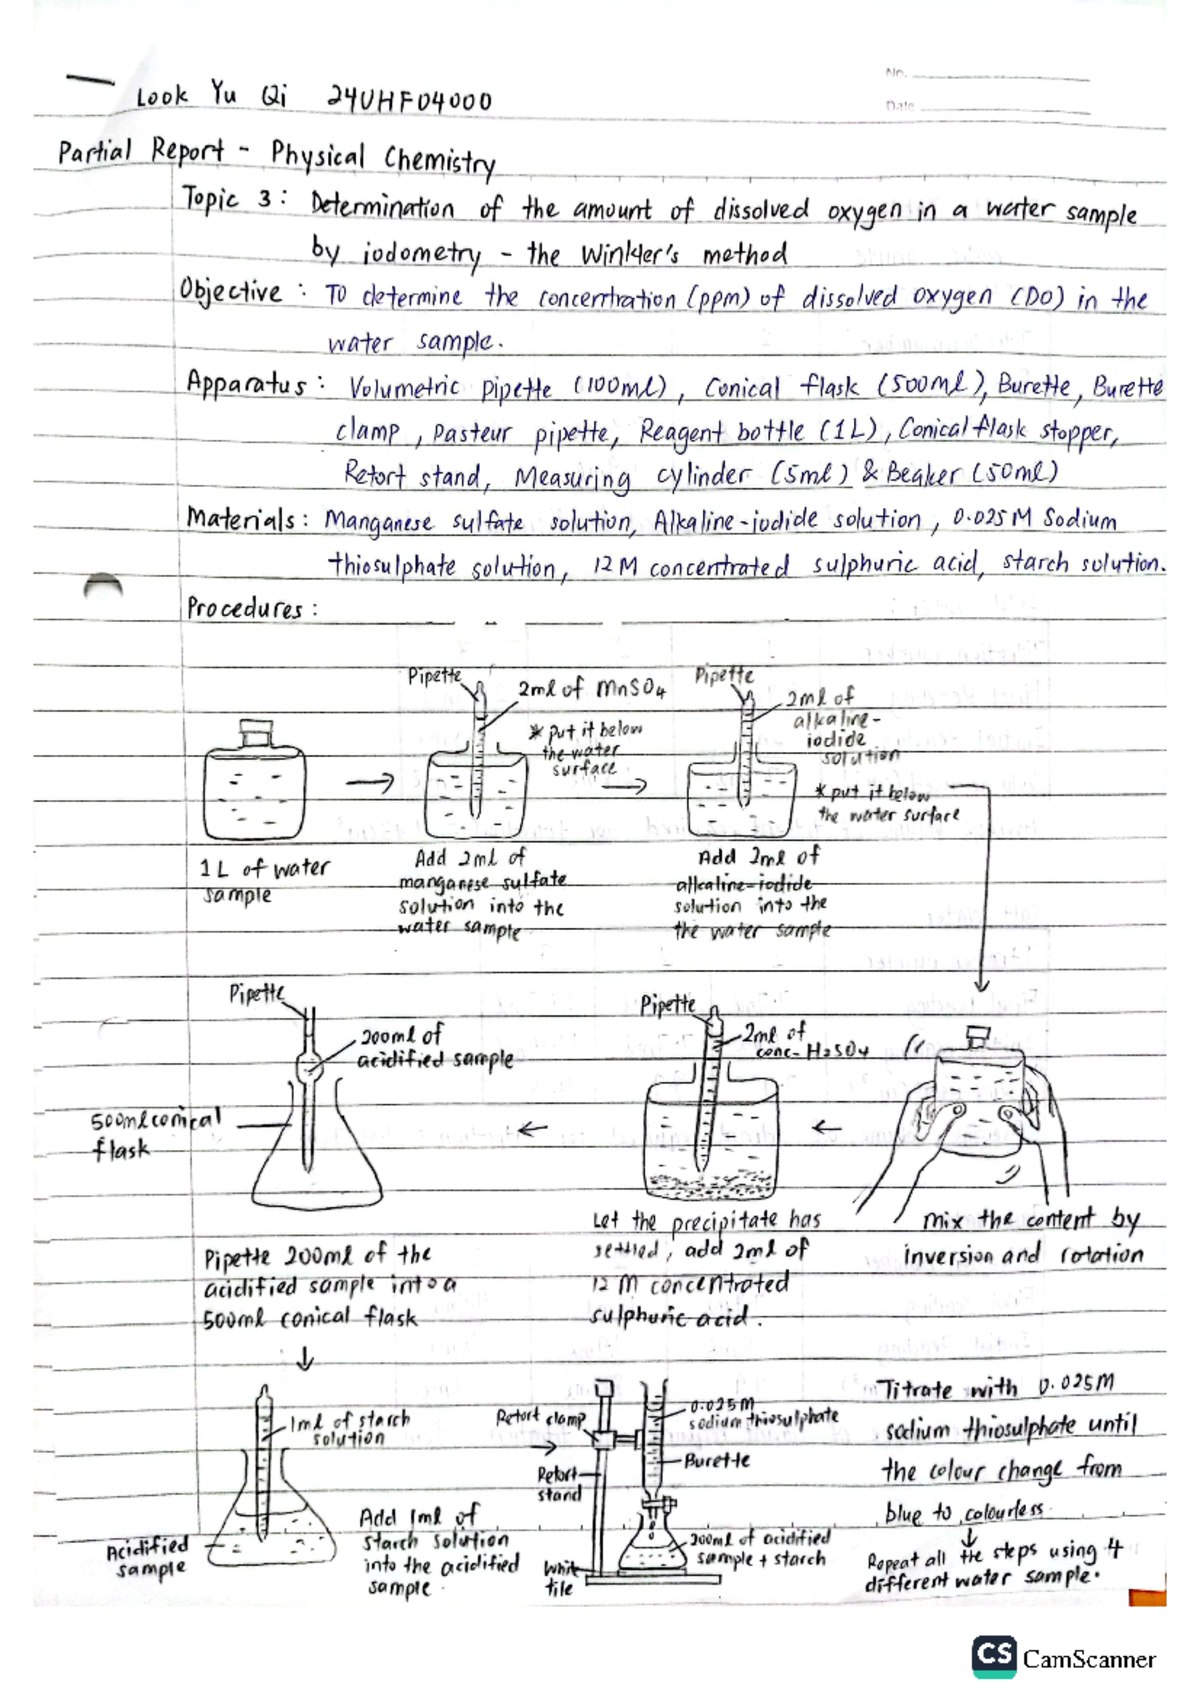 No.
Look Yu Qi 24UHF04000
Date
Partial Report - Physical Chemistry
Topic 3: Determination of the amount of dissolved oxygen in a water sample
by iodometry - the Winkler's method
Objective: To determine the concentration (ppm) of dissolved oxygen (DO) in the
water sample.
Apparatus: Volumetric pipette (100ml), Conical flask (500ml), Burette, Burette
clamp, Pasteur pipette, Reagent bottle (1L), Conical flask stopper,
Retort stand, Measuring cylinder (5ml) & Beaker (50ml)
Materials: Manganese sulfate solution, Alkaline-iodide solution, 0.025M Sodium
thiosulphate solution, 12M concentrated sulphuric acid, starch solution.
Procedures:
Pipette
2ml of MnSO4
* put it below
the water
surface
Pipette
2ml of
alkaline-
iodide
solution
* put it below
the water surface
1L of water
sample
Add 2ml of
manganese sulfate
solution into the
water sample
Add 2ml of
alkaline-iodide
solution into the
the water sample
Pipette
200ml of
acidified sample
500ml conical
flask
Pipette
2ml of
conc-H2SO4
Pipette 200ml of the
acidified sample into a
500ml conical flask
Let the precipitate has
settled, add 2ml of
12M concentrated
sulphuric acid.
mix the content by
inversion and rotation
1ml of starch
solution
Acidified
sample
Add 1ml of
starch solution
into the acidified
sample.
Retort clamp
Retort
stand
White
tile
0.025M
sodium thiosulphate
Burette
200ml of acidified
sample + starch
Titrate with 0.025M
sodium thiosulphate until
the colour change from
blue to colourless.
Repeat all the steps using 4
different water sample.
CS CamScanner